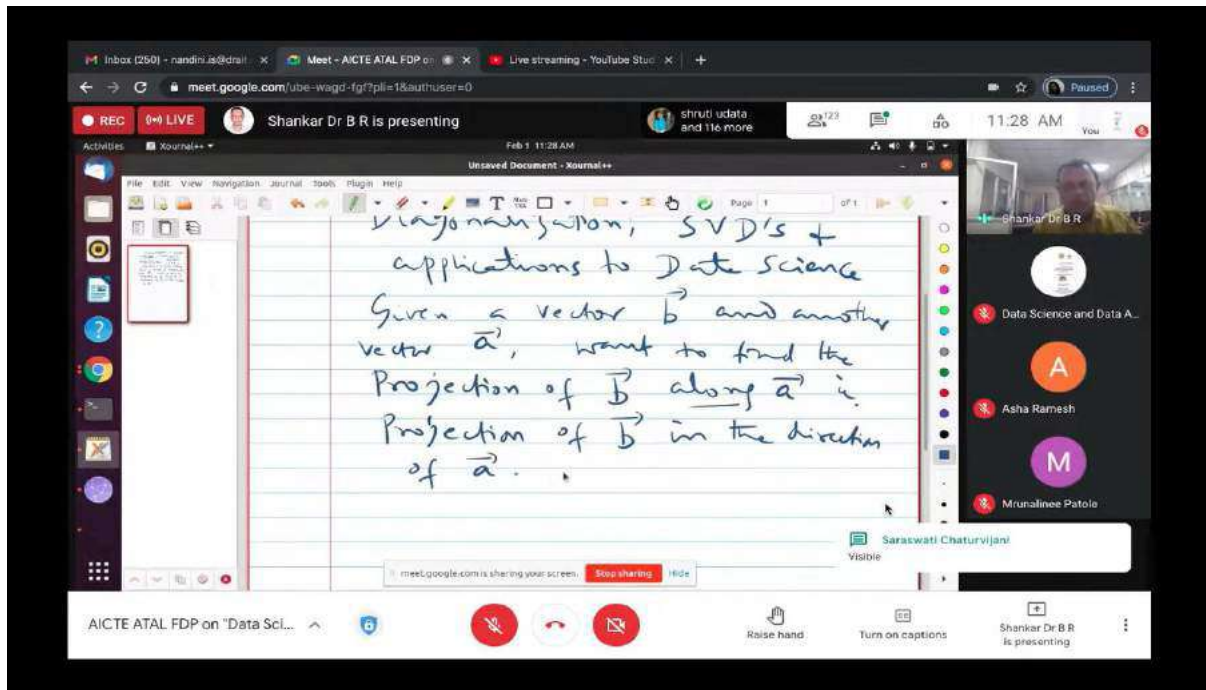 Inbox (250) - nandini.is@drait
Meet - AICTE ATAL FDP on
Live streaming - YouTube Stud
meet.google.com/ube-wagd-fgf?pli=1&authuser=0
Paused
REC
LIVE
Shankar Dr B R is presenting
shruti udata
and 116 more
123
11:28 AM
You
Activities
Xournal++
Feb 1 11:28 AM
Unsaved Document - Xournal++
File Edit View Navigation Journal Tools Plugin Help
Page 1 of 1
Diagonalization, SVD's +
applications to Data Science
Given a vector b and another
vector a, want to find the
Projection of b along a i
Projection of b in the direction
of a.
Shankar Dr B R
Data Science and Data A...
A
Asha Ramesh
M
Mrunalinee Patole
Saraswati Chaturvijani
Visible
meet.google.com is sharing your screen.
Stop sharing
Hide
AICTE ATAL FDP on "Data Sci...
Raise hand
Turn on captions
Shankar Dr B R
is presenting